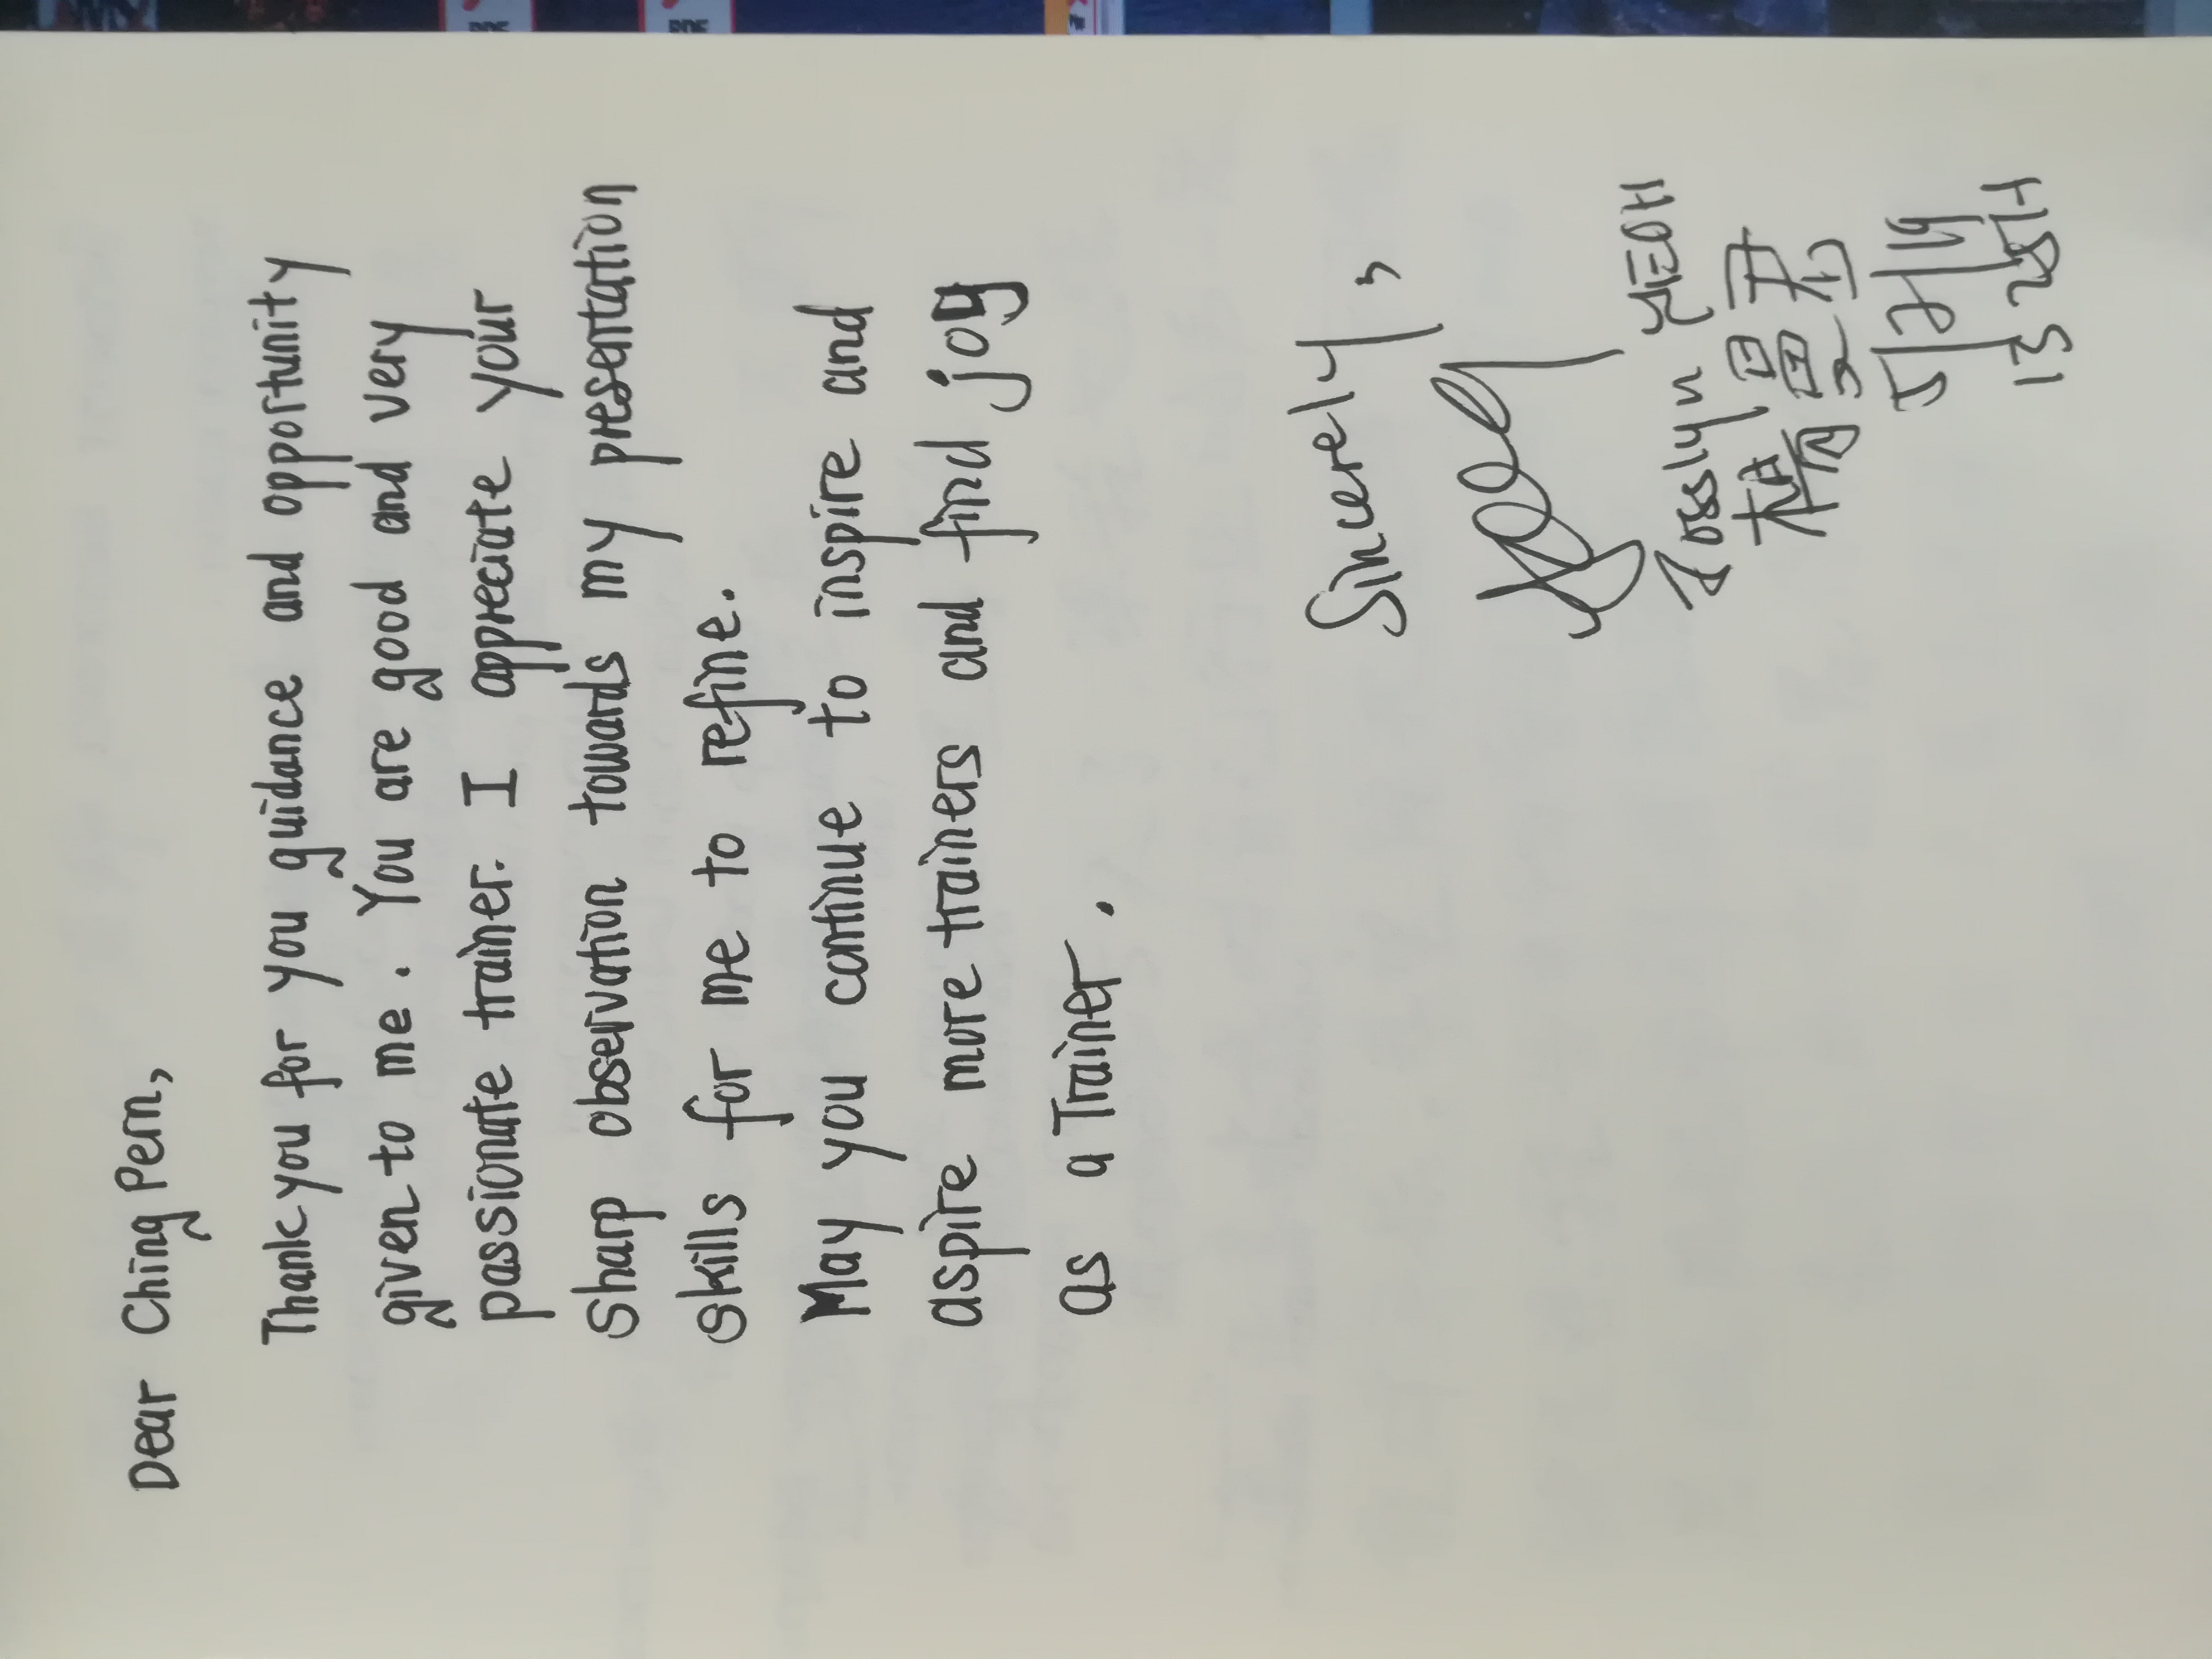 Dear Ching Pern,
Thank you for you guidance and opportunity
given to me. You are good and very
passionate trainer. I appreciate your
sharp observation towards my presentation
skills for me to refine.
May you continue to inspire and
aspire more trainers and find joy
as a Trainer.
Sincerely,
Rosslyn YEOH
PDF
PDF